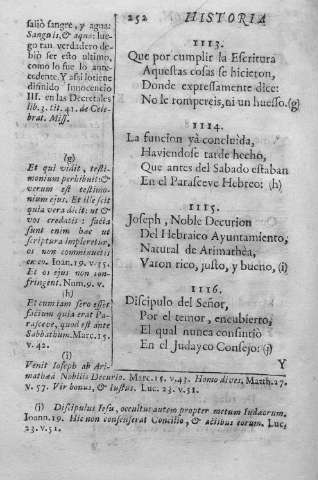 252 HISTORIA
saliò sangre, y agua:
Sanguis, & aqua: lue-
go tan verdadero de-
biò ser esto ultimo,
como lo fue lo ante-
cedente. Y assi lo tiene
difinido Innocencio
III. en las Decretales
lib. 3. tit. 41. de Cele-
brat. Miss.
(g)
Et qui vidit, testi-
monium perhibuit: &
verum est testimo-
nium ejus. Et ille scit
quia vera dicit: ut &
vos credatis: facta
sunt enim hæc ut
scriptura impleretur,
os non comminuetis
ex eo. Ioann. 19. v. 35.
Et os ejus non con-
fringent. Num. 9. v.
(h)
Et cum iam sero esset
factum quia erat Pa-
rasceve, quod est ante
Sabbathum. Marc. 15.
v. 42.
(i)
1113.
Que por cumplir la Escritura
Aquestas cosas se hicieron,
Donde expressamente dice:
No le rompereis, ni un huesso. (g)
1114.
La funcion yà concluìda,
Haviendose tarde hecho,
Que antes del Sabado estaban
En el Parasceve Hebreo: (h)
1115.
Joseph, Noble Decurion
Del Hebraico Ayuntamiento,
Natural de Arimathèa,
Varon rico, justo, y bueno, (i)
1116.
Discipulo del Señor,
Por el temor, encubierto,
El qual nunca consintiò
En el Judayco Consejo: (j)
Y
Venit Ioseph ab Ari-
mathæa Nobilis Decurio. Marc. 15. v. 43. Homo dives, Matth. 27.
v. 57. Vir bonus, & iustus. Luc. 23. v. 51.
(i) Discipulus Iesu, occultus autem propter metum Iudæorum.
Ioann. 19. Hic non consenserat Concilio, & actibus eorum. Luc.
23. v. 51.